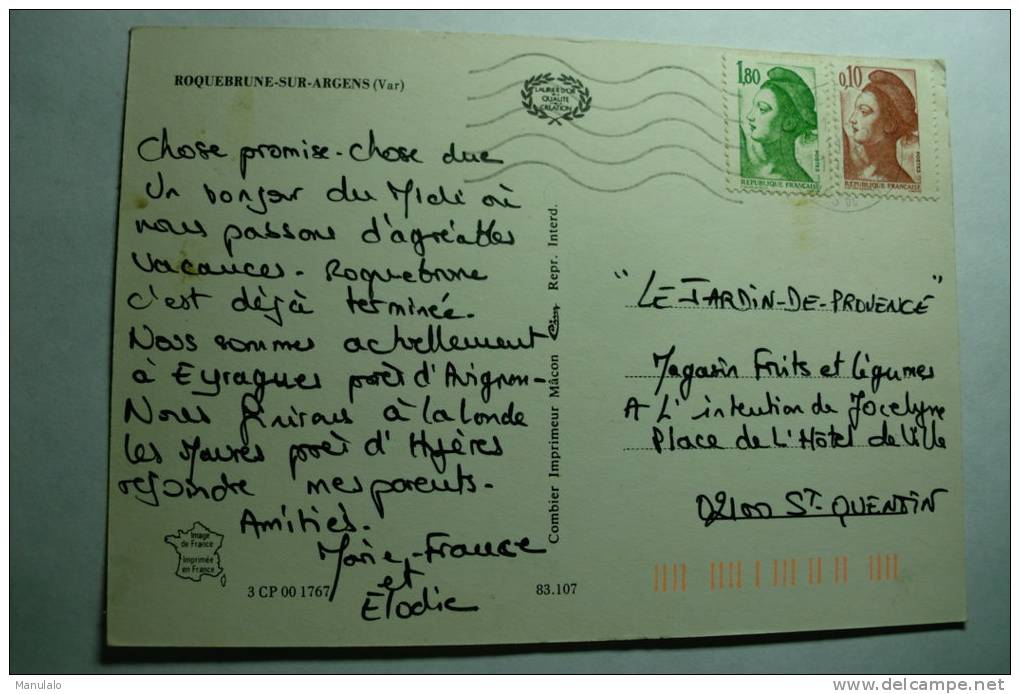 ROQUEBRUNE-SUR-ARGENS (Var)
Chose promise - Chose due
Un bonjour du Midi où
nous passons d'agréables
vacances - Roquebrune
c'est déjà terminée.
Nous sommes actuellement
à Eyragues près d'Avignon -
Nous finirons à la londe
les Maures près d'Hyères
rejoindre mes parents -
Amitiés.
Marie-France
et
Elodie
Image
de France
Imprimée
en France
3 CP 00 1767
83.107
Combier Imprimeur Mâcon Cim Repr. Interd.
LAURIER D'OR
QUALITÉ
CRÉATION
1,80
POSTES
REPUBLIQUE FRANÇAISE
0,10
POSTES
REPUBLIQUE FRANÇAISE
"LE JARDIN-DE-PROVENCE"
Magasin Fruits et légumes
A L'intention de Jocelyne
Place de L'Hôtel de Ville
02100 ST-QUENTIN
Manulalo
delcampe.net